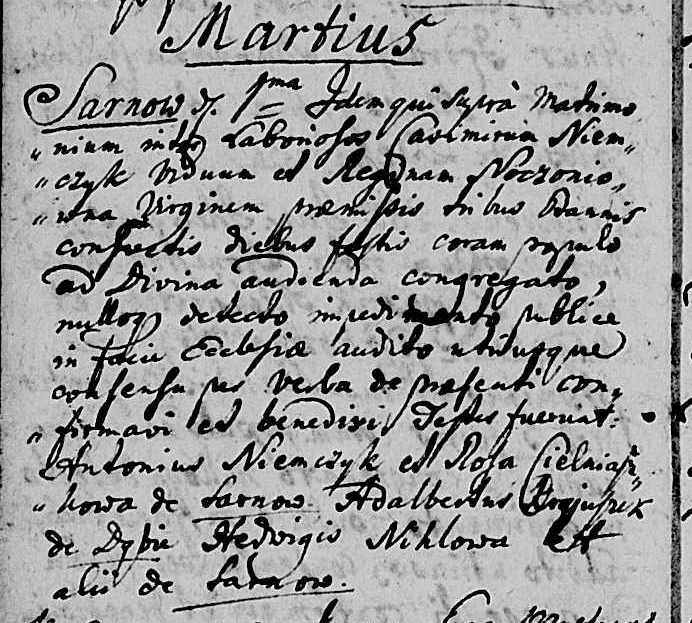 Martius
Sarnow d. 1ma Idem qui supra Matrimo„
„nium inter Laboriosos Casimirum Niem„
„czyk Viduum et Reginam Noczonio„
„wna Virginem præmissis tribus Bannis
consuetis diebus festis coram populo
ad Divina audienda congregato,
nulloq detecto impedimento publice
in facie Ecclesiæ audito utriusque
consensu per verba de præsenti con„
„firmavi et benedixi Testes fuerunt:
Antonius Niemczyk et Rosa
„kowa de Sarnow Adalbertus
de Hedvigis Niklowa et
alii de Sarnow.